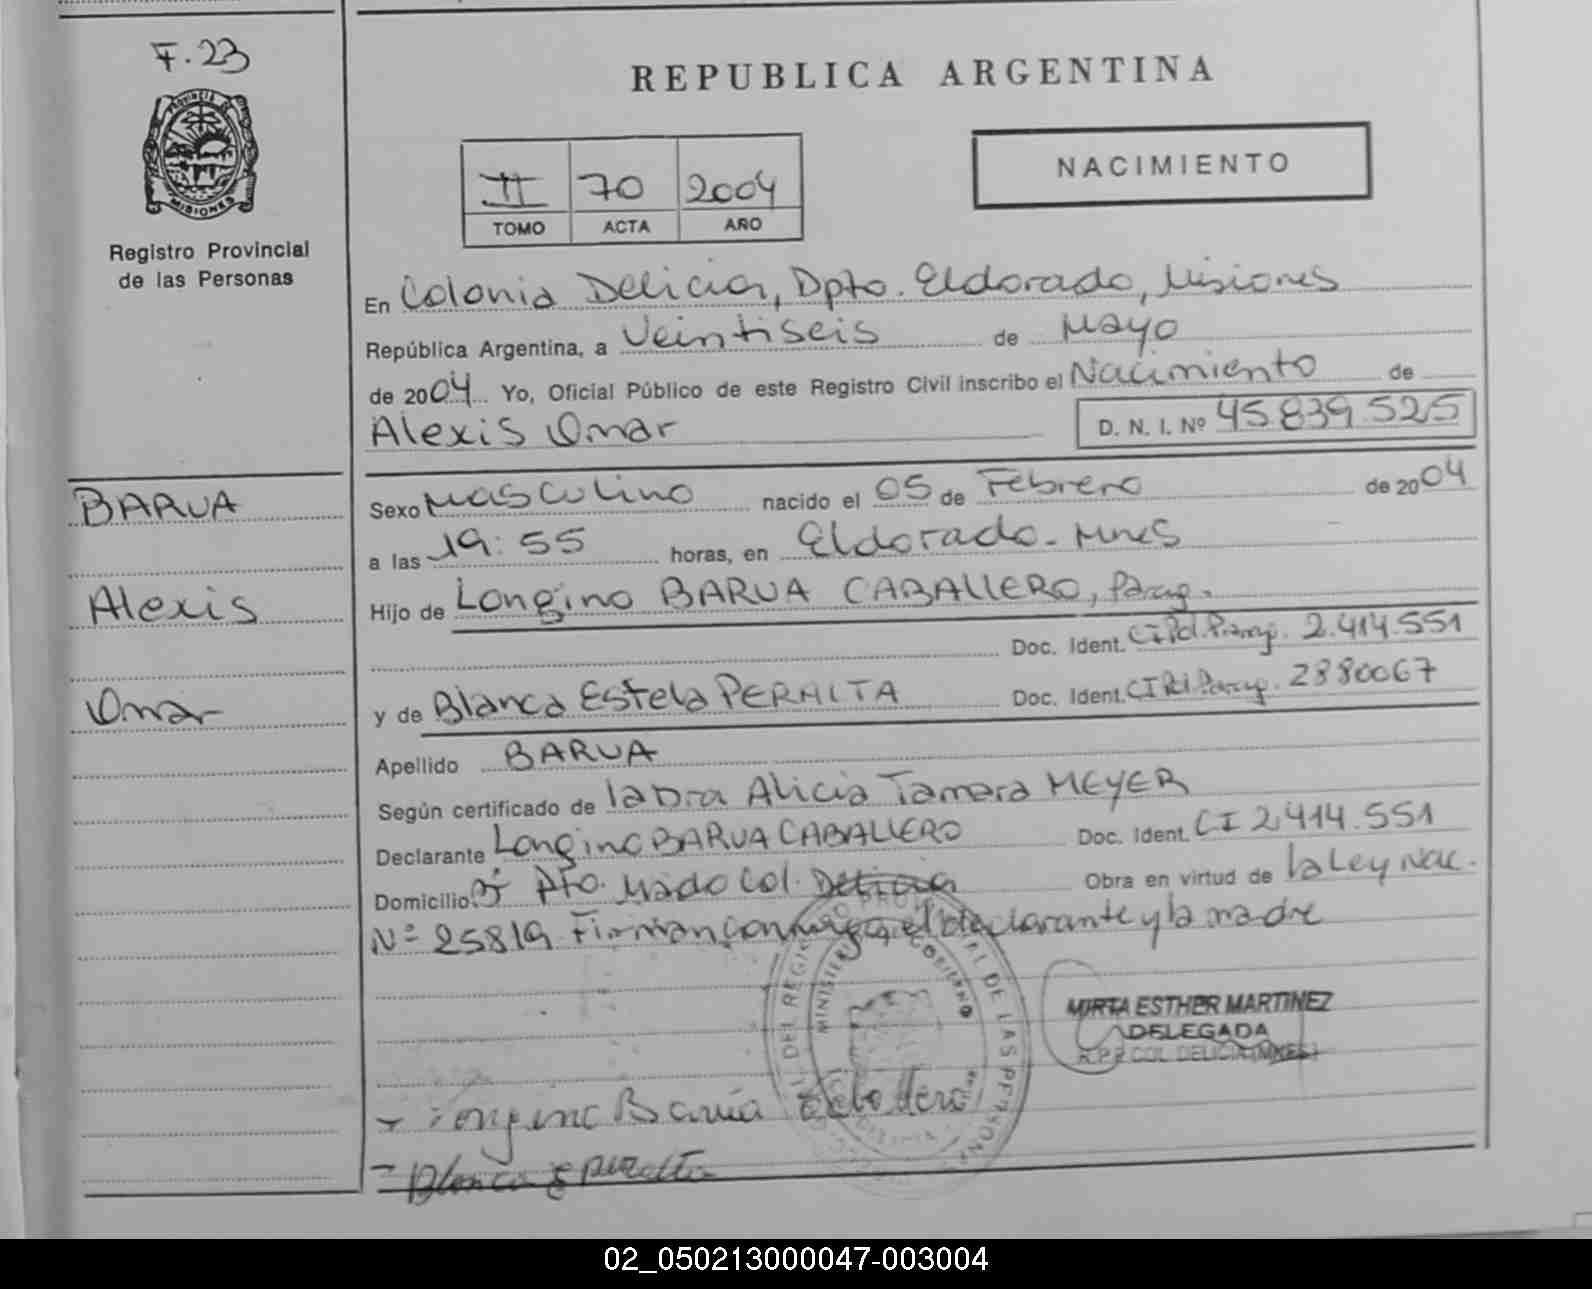 F. 23
PROVINCIA DE
MISIONES
Registro Provincial
de las Personas
REPUBLICA ARGENTINA
II 70 2004
TOMO ACTA AÑO
NACIMIENTO
En Colonia Delicia, Dpto. Eldorado, Misiones
República Argentina, a Veintiseis de Mayo
de 2004 Yo, Oficial Público de este Registro Civil inscribo el Nacimiento de
Alexis Omar D. N. I. Nº 45.839.525
BARUA
Alexis
Omar
Sexo Masculino nacido el 05 de Febrero de 2004
a las 19:55 horas, en Eldorado - Mnes
Hijo de Longino BARUA CABALLERO, Parag.
Doc. Ident. CI Pol. Parag. 2.414.551
y de Blanca Estela PERALTA Doc. Ident. CI Pol Parag. 2880067
Apellido BARUA
Según certificado de la Dra Alicia Tamara MEYER
Declarante Longino BARUA CABALLERO Doc. Ident. CI 2.414.551
Domicilio Pto. Mado Col. Delicia Obra en virtud de la Ley Nac.
Nº 25819 Firman conmigo el declarante y la madre
MIRTA ESTHER MARTINEZ
DELEGADA
R.P.P. COL DELICIA (MNES)
DEL REGISTRO PROVINCIAL DE LAS PERSONAS
MINISTERIO GOBIERNO
Longino Barúa Caballero
Blanca E peralta
02_050213000047-003004